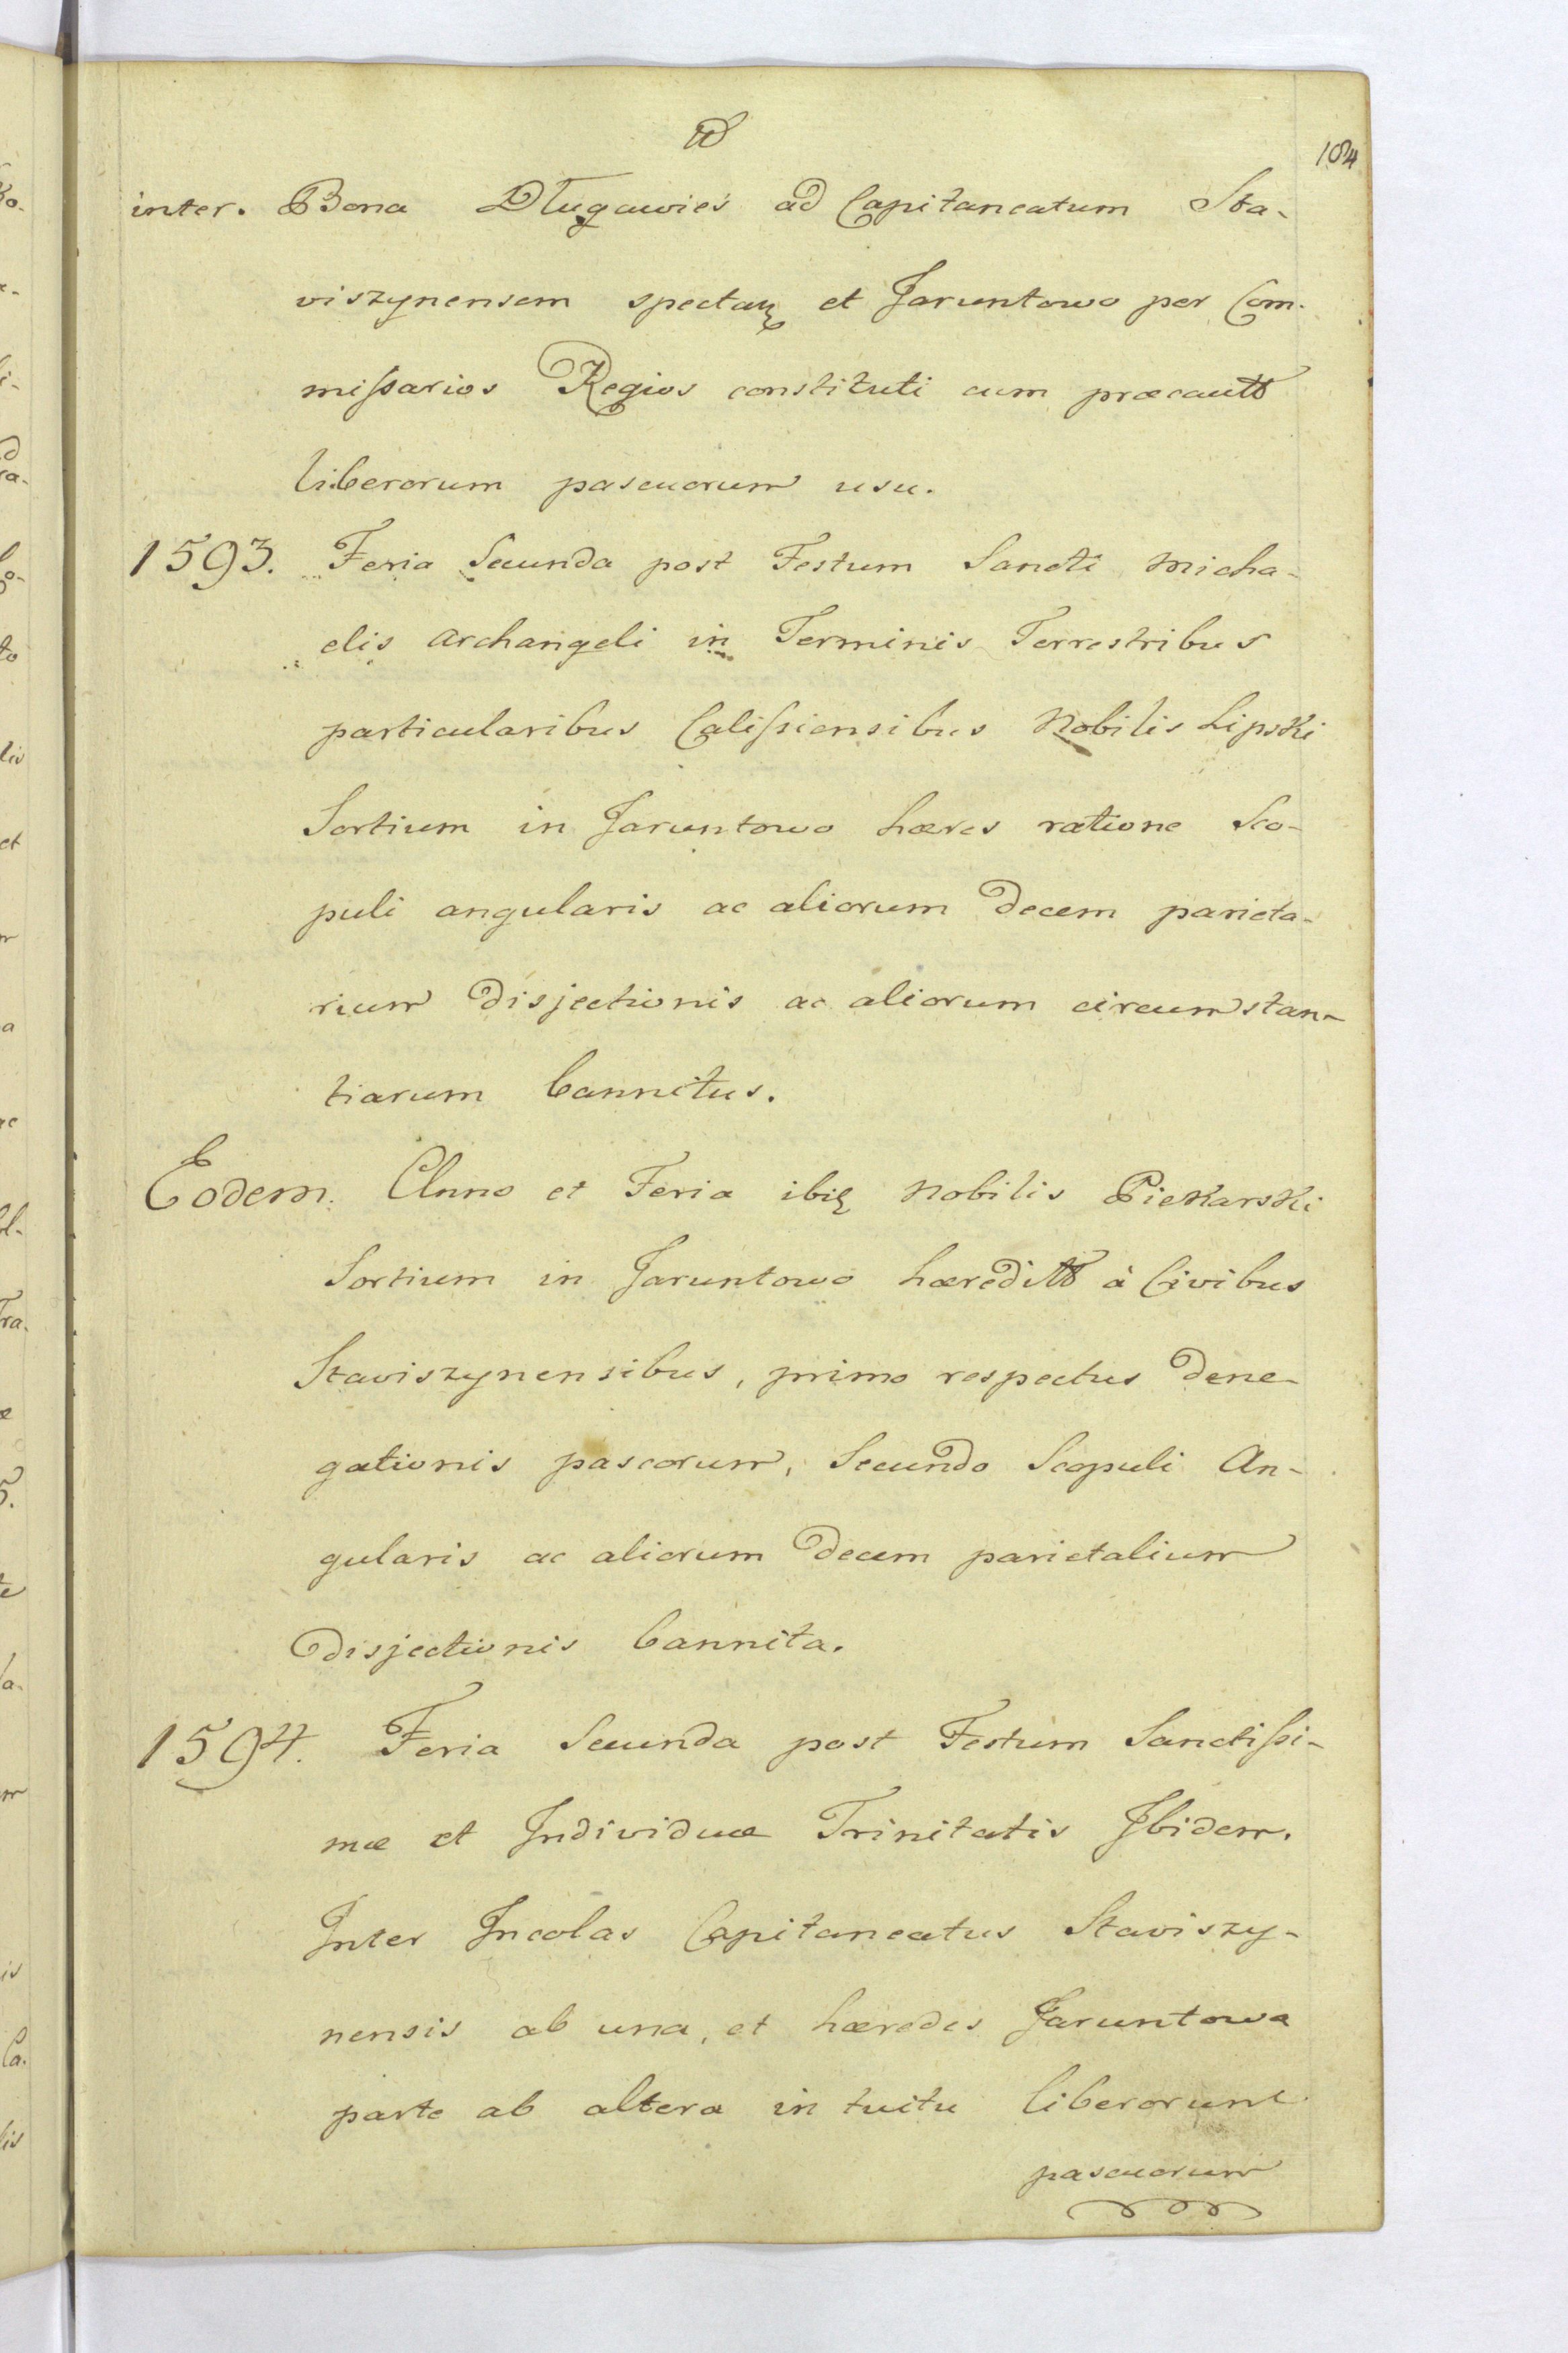 184
inter. Bona Długawieś ad Capitaneatum Sta-
viszynensem spectan et Jaruntowo per Com-
missarios Regios constituti cum præcautt
liberorum pascuorum usu.
1593. Feria Secunda post Festum Sancti Micha-
elis Archangeli in Terminis Terrestribus
particularibus Calissiensibus Nobilis Lipski
Sortium in Jaruntowo hæres ratione Sco-
puli angularis ac aliorum decem parieta-
rium disjectionis ac aliorum circumstan-
tiarum bannitus.
Eodem. Anno et Feria ibid Nobilis Piekarski
Sortium in Jaruntowo hæreditt à Civibus
Staviszynensibus, primo respectus dene-
gationis pascorum, Secundo Scopuli An-
gularis ac aliorum decem parietalium
disjectionis bannita.
1594. Feria Secunda post Festum Sanctissi-
mæ et Individuæ Trinitatis Ibidem.
Inter Incolas Capitaneatus Staviszy-
nensis ab una, et hæredes Jaruntowa
parte ab altera in tuitu liberorum
pascuorum